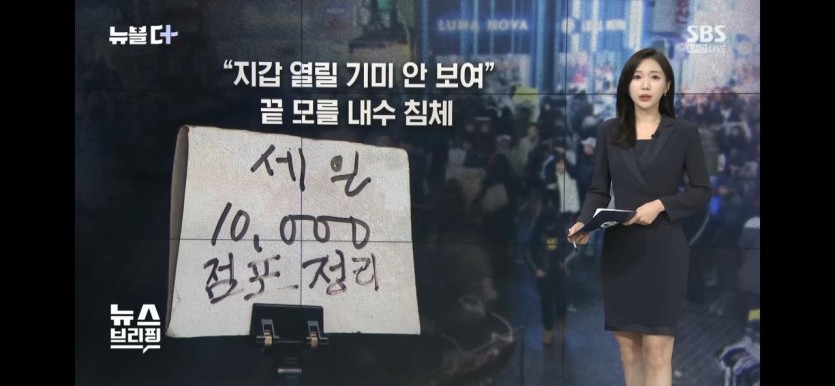 뉴블더+
SBS
LIVE
“지갑 열릴 기미 안 보여”
끝 모를 내수 침체
세일
10,000
점포정리
뉴스
브리핑